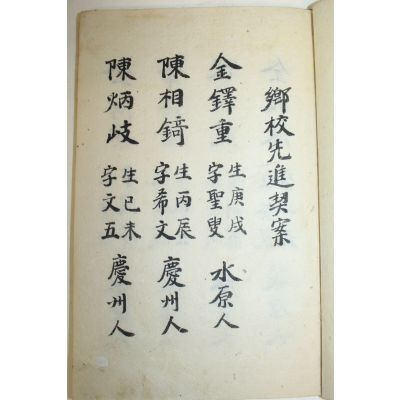 鄕校先進契案
金鐸重 生庚戌 字聖叟 水原人
陳相錡 生丙辰 字希文 慶州人
陳炳岐 生已未 字文五 慶州人